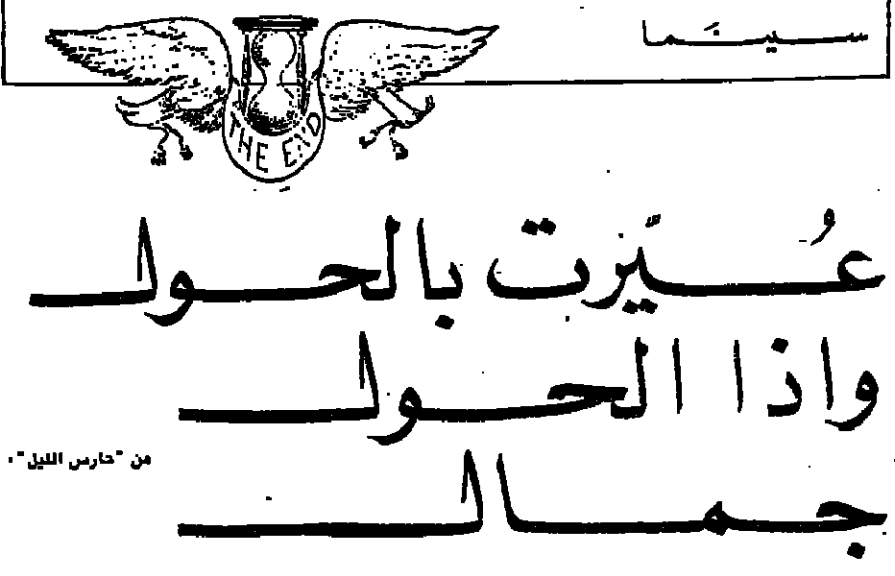 سينما
THE END
عُيّرت بالحول
واذا الحول
جمال
من "حارس الليل".